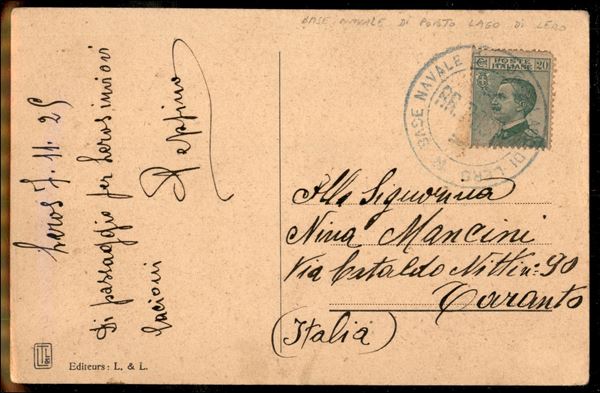 BASE NAVALE DI PORTO LAGO DI LERO
Leros 7.11.25
Di passaggio per Leros inviovi
bacioni
Peppino
POSTE ITALIANE
20
BASE NAVALE
DI LERO
Alla Signorina
Nina Mancini
Via Cataldo Nitti n: 90
Taranto
(Italia)
Editeurs: L. & L.